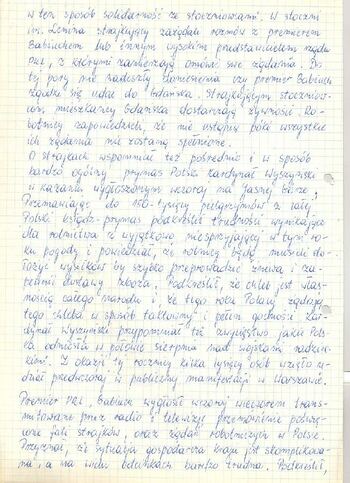 w ten sposób solidarność ze stoczniowcami. W stoczni
im. Lenina strajkujący zażądali rozmów z premierem
Babiuchem lub innym wysokim przedstawicielem rządu
PRL, z którymi zamierzają omówić swe żądania. Do
tej pory nie nadeszły doniesienia czy premier Babiuch
zgodził się udać do Gdańska. Strajkującym stoczniow-
com, mieszkańcy Gdańska dostarczają żywność. Ro-
botnicy zapowiedzieli, że nie ustąpią póki wszystkie
ich żądania nie zostaną spełnione.
O strajkach wspomniał też pośrednio i w sposób
bardzo ogólny prymas Polski kardynał Wyszyński
w kazaniu wygłoszonym wczoraj na Jasnej Górze,
Przemawiając do 150-tysięcy pielgrzymów z całej
Polski ksiądz-prymas podkreślił trudności wynikające
dla rolnictwa z wyjątkowo niesprzyjającej w tym ro-
ku pogody i powiedział, że rolnicy będą musieli do-
łożyć wysiłków by szybko przeprowadzić żniwa i za-
pewnić dostawy zboża. Podkreślił, że chleb jest włas-
nością całego narodu i, że tego roku Polacy żądają
tego chleba w sposób taktowny i pełen godności. Kar-
dynał Wyszyński przypomniał też zwycięstwo jakie Pols-
ka odniosła w połowie sierpnia nad wojskami radziec-
kimi. Z okazji tej rocznicy kilka tysięcy osób wzięło u-
dział przedwczoraj w publicznej manifestacji w Warszawie.
Premier PRL, Babiuch wygłosił wczoraj wieczorem trans-
mitowane przez radio i telewizję przemówienie poświę-
cone fali strajków, oraz żądań robotniczych w Polsce.
Przyznał, że sytuacja gospodarcza kraju jest skomplikowa-
na, a na wielu odcinkach bardzo trudna. Podkreślił,